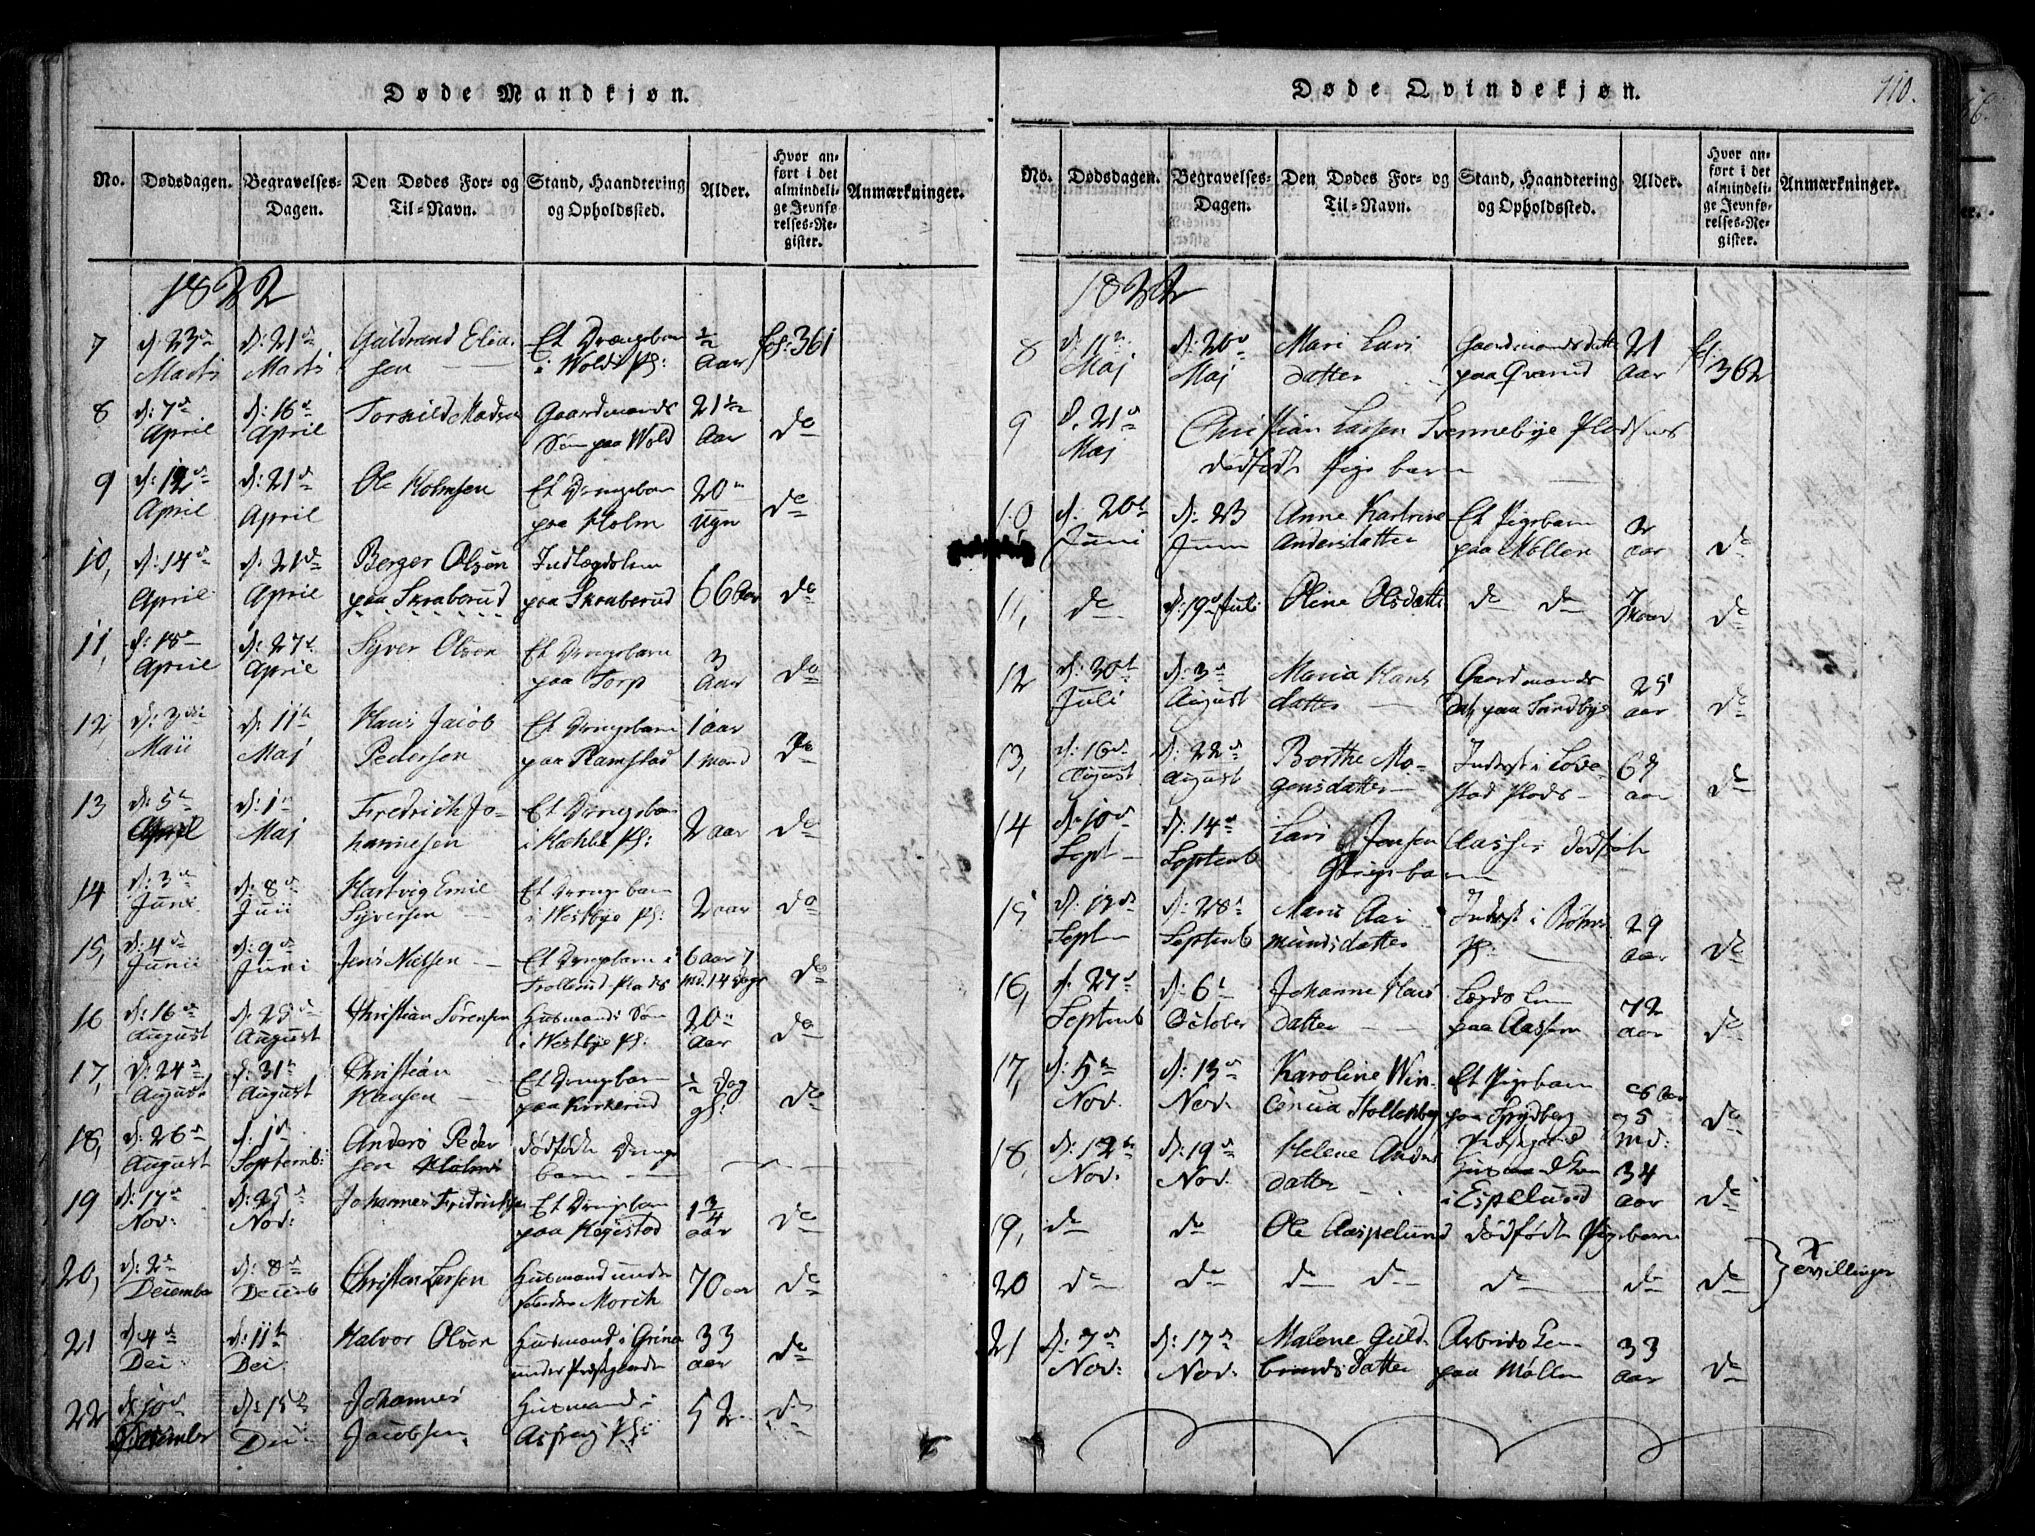 Døde Mandkjøn.
No. Dødsdagen. Begravelses-Dagen. Den Dødes For- og Til-Navn. Stand, Haandtering og Opholdssted. Alder. Hvor anført i det almindelige Jevnførelses-Register. Anmærkninger.
1822
7 d: 23de Martii d: 21de Martii Guldrand Elia- sen Et Drængebarn i Wold Pl: ½ Aar fol: 361
8 d: 7de April d: 16de April Torkild Madsen Gaardmands Søn paa Wold 21½ Aar do
9 d: 12de April d: 21de April Ole Holmsen Et Drengebarn paa Holm 20 Ugr do
10, d: 14de April d: 21de April Berger Olsøn paa Skraberud Indlægdslem paa Skraberud 66 Aar do
11, d: 18de April d: 27de April Syver Olsøn Et Drengebarn paa Torp 3 Aar do
12 d: 3die Maii d: 11te Maj Hans Jacob Pedersen Et Drengebarn paa Ramstad 1 aar 1 maand do
13 d: 5te April d: 1te Maj Fredrich Jo- hannesen Et Drengebarn i Pl: 2 aar do
14 d: 3de Juni d: 8de Juii Hartvig Emil Syversen Et Drengebarn i Westbye Pl: 2 aar do
15, d: 4de Junii d: 9de Juni Jens Nielsen Et Drengebarn i Trollerud Plads 6 aar 7 md. 14 Dage do
16 d: 16de August d: 23de August Christian Sörensen Huusmands Søn i Westbye Pl: 20 aar do
17, d: 24de August d: 31te August Christian Hansen Et Drengebarn paa Kirkerud ½ Dag gl: do
18, d: 26de August d: 1de Septembr: Anders Peder sen Holmsi dödfödt Drenge barn
19 d: 17de Nov: d: 25de Nov: Johannes Fredrichsen Et Drengebarn paa Kogestad 1¾ aar do
20, d: 2de December d: 8de Decemb Christen Larsen Huusmand under Morik 70 aar do
21 d: 4de Dec: d: 11te Dec: Halvor Olsen Huusmand i Grina under Præstgaarden 33 aar do
22 d: 10de December d: 15de Dec: Johannes Jacobsen Huusmand i Pl: 52 do
Døde Qvindekjøn.
110.
No. Dødsdagen. Begravelses-Dagen. Den Dødes For- og Til-Navn. Stand, Haandtering og Opholdssted. Alder. Hvor anført i det almindelige Jevnførelses-Register. Anmærkninger.
1822
8 d. 11te Maj d: 20de Maj Mari Lars datter Gaardmands datter paa Qvarud 21 Aar fol: 362
9 d. 21de Maj Christian Larsen Svennebye Pladsens dödfødt Pige barn
10 d: 20de Juni d: 23 Juni Anne Kartrine Andersdatter Et Pigebarn paa Möllen 2 aar do
11, do d: 19de Juli Oline Olsdatter do do 7 aar do
12 d: 30te Juli d: 3de August Maria Hans datter Gaardmands Dat: paa Sundbye 25 aar do
13, d: 16de August d: 22de August Borthe Mo- gensdatter Inderst i Løve- stad Plads 67 aar do
14 d: 10de Sept d: 14de Septemb Lars Jensen Aasser Dödfödt Pigebarn
15 d: 19de Sept d: 28de Septemb Maris Aas mundsdatter Inderst i Pl: 29 aar do
16, d: 27de Septemb d: 6te October Johanne Hans datter Lægds Lem paa Aassem 72 aar do
17, d: 5te Nov. d: 13de Nov. Karoline Win- Stoltenberg Et Pigebarn paa Spydberg Præstgaard 6 Aar 5 Md: do
18, d: 12te Nov. d: 19de Nov. Helene Anders datter Huusmands Kone i Espelund 34 aar do
19, do do Ole Aaspelund dödfödt Pigebarn
20 do do do do do do do } Tvillinger
21 d: 7de Nov: d: 17de Nov: Malene Guld- brandsdatter Arbeids Lem paa Møllen 33 aar do